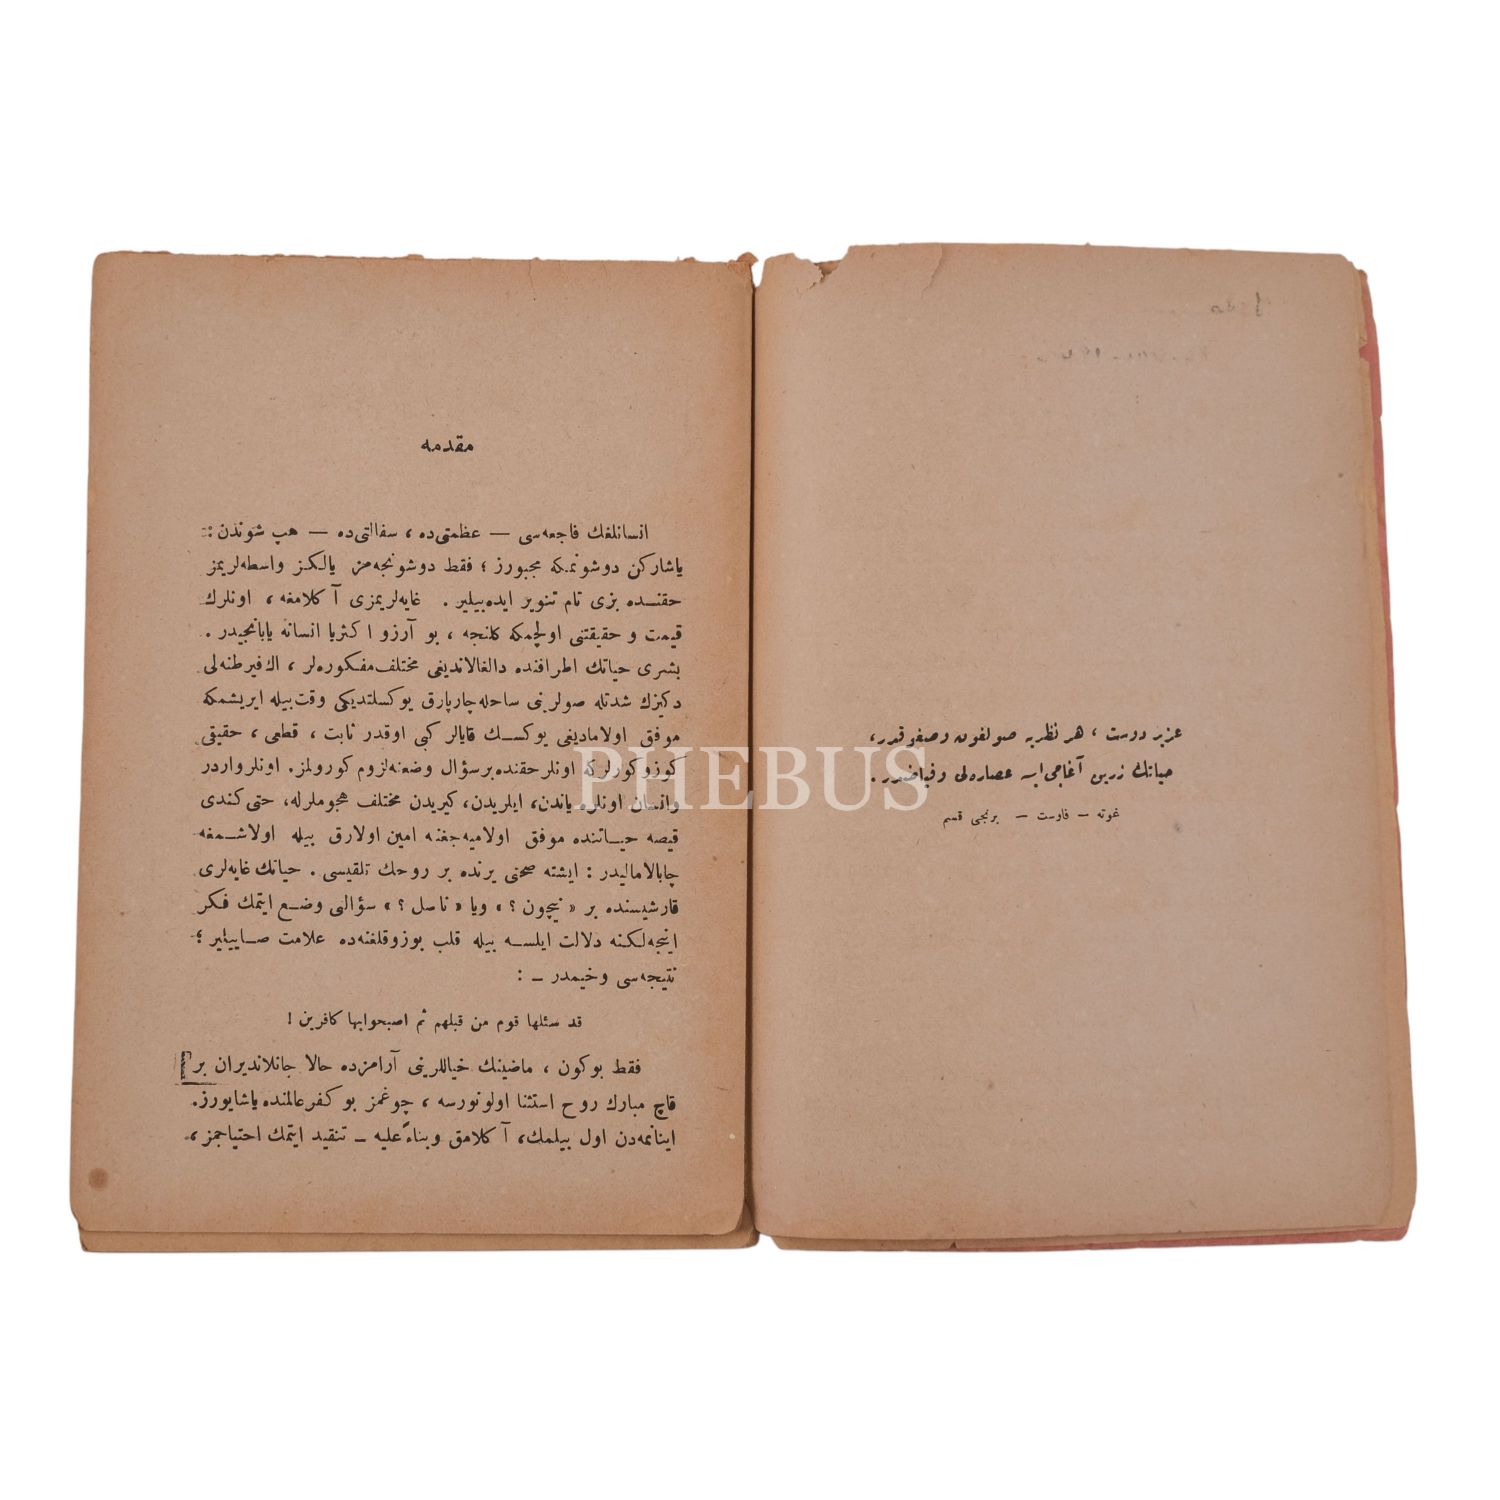 عزیز دوست ، هر نظریه صولغون و صغوقدر،
حیاتك زرین آغاجی ایسه عصاره‌لی و فیاضدر .
غوته – فاوست – برنجی قسم
مقدمه
انسانلغك فاجعه‌سی — عظمتی‌ده ، سفالتی‌ده — هپ شوندن :
یاشارکن دوشونمکه مجبورز ؛ فقط دوشونجه‌مز یالکز واسطه‌لریمز
حقنده بزی تام تنویر ایده‌بیلیر . غایه‌لریمزی آ کلامغه ، اونلرك
قیمت و حقیقتنی اولچمکه کلنجه ، بو آرزو ا کثریا انسانه یابانجیدر .
بشری حیاتك اطرافنده دالغالاندیغی مختلف مفکوره‌لر ، اك فیرطنه‌لی
دکیزك شدتله صولرینی ساحله چارپارق یوکسلتدیکی وقت بیله ایریشمکه
موفق اولامادیغی یوکسك قایالر کبی اوقدر ثابت ، قطعی ، حقیقی
کوزوکورلرکه اونلر حقنده بر سؤال وضعنه لزوم کورولمز. اونلر واردر
وانسان اونلره یاندن، ایلریدن، کیریدن مختلف هجوملرله، حتی کندی
قیصه حیاتنده موفق اولامیه‌جغنه امین اولارق بیله اولاشمغه
چابالامالیدر : ایشته صحنی یرنده بر روحك تلقیسی . حیاتك غایه‌لری
قارشیسنده بر « نیچون ؟ » ویا « ناصل ؟ » سؤالی وضع ایتمك فکر
اینجه‌لکنه دلالت ایلسه بیله قلب بوزوقلغنه‌ده علامت صاییلیر ؛
نتیجه‌سی وخیمدر – :
قد سئلها قوم من قبلهم ثم اصبحوابها کافرین !
فقط بوکون ، ماضینك خیاللرینی آرامزده حالا جانلاندیران بر
قاچ مبارك روح استثنا اولونورسه ، چوغمز بو کفر عالمنده یاشایورز.
اینانمه‌دن اول بیلمك، آ کلامق وبناءً علیه – تنقید ایتمك احتیاجمز ،
PHEBUS